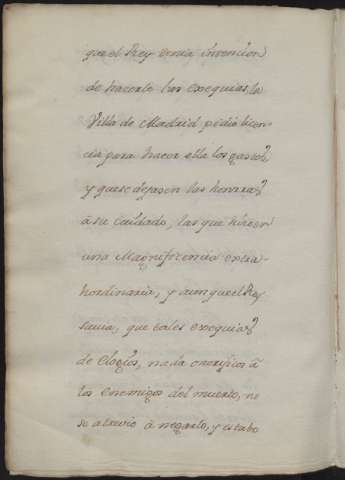 que el Rey tenia intencion
de hacerle las exequias, la
Villa de Madrid pidio licen-
cia para hacer ella los gastos,
y que se dejasen las honrras
à su cuidado, las que hicieron
una Magnificencia extra-
hordinaria, y aunque el Rey
savia, que tales exequias
de elogios, nada onorificos à
los enemigos del muerto, no
se atrevio à negarlo, y estubo